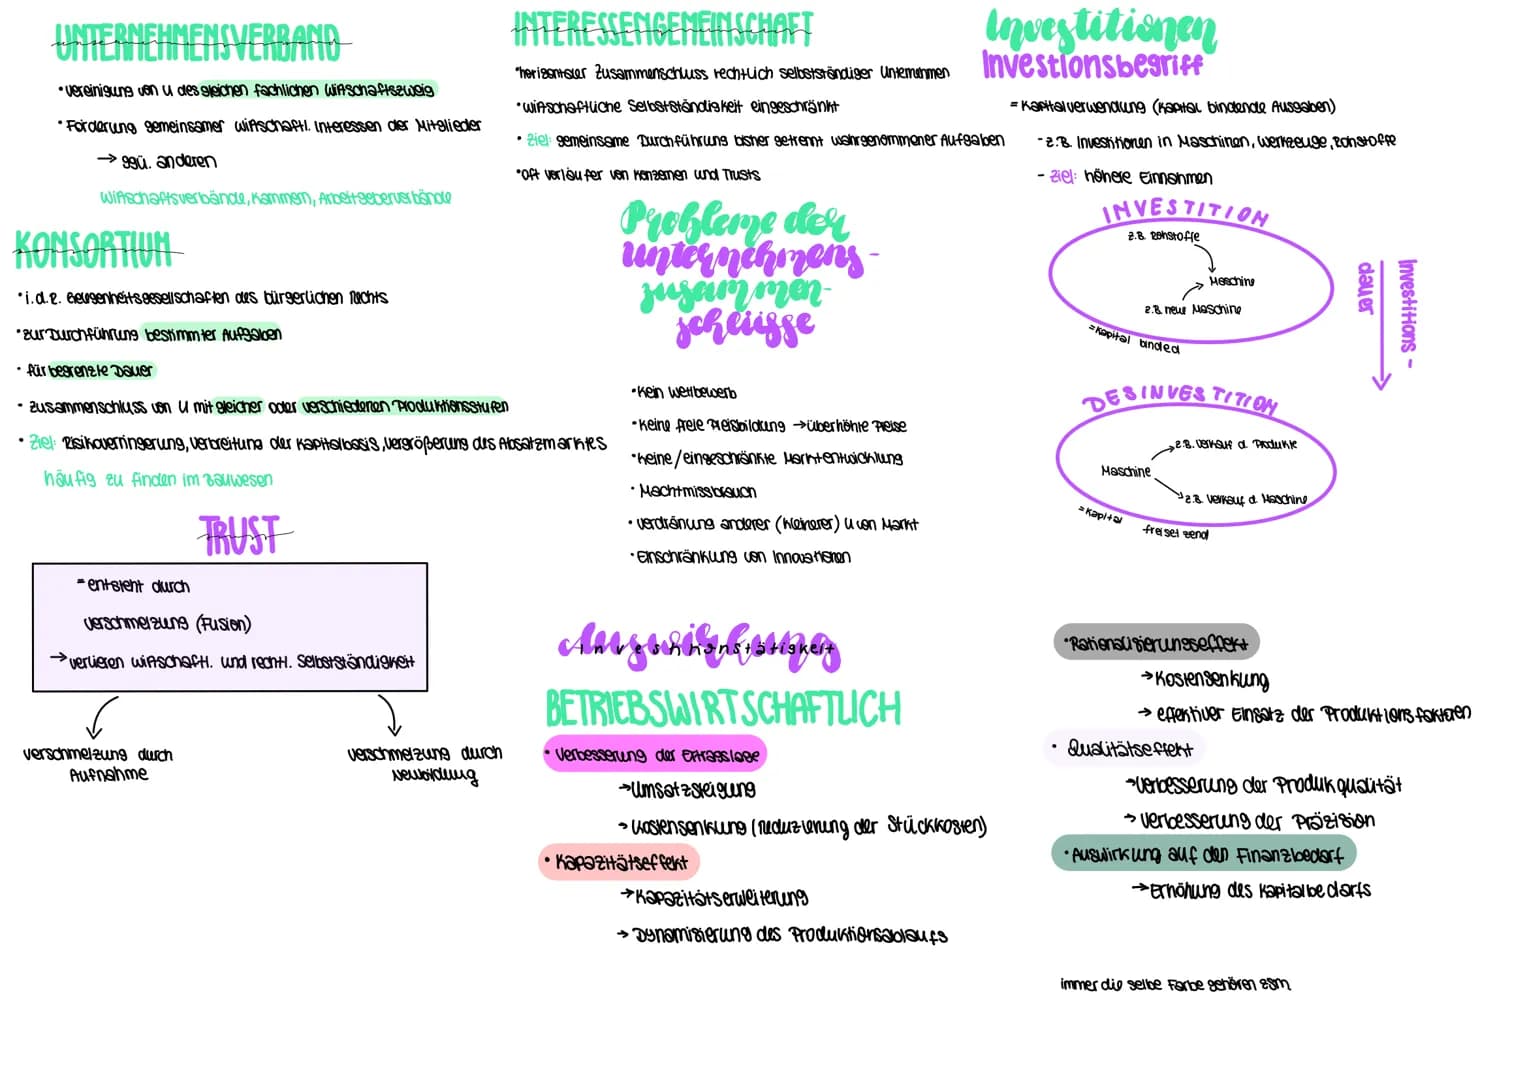 UNTERNEHMENSVERBAND
• Vereinigung von U des gleichen fachlichen Wirtschaftszweig
• Förderung gemeinsamer wirtschaftl. Interessen der Mitglieder
→ ggü. anderen
Wirtschaftsverbände, Kammern, Arbeitgeberverbände
KONSORTIUM
• i.d.R. Gelegenheitsgesellschaften des bürgerlichen Rechts
• zur Durchführung bestimmter Aufgaben
• für begrenzte Dauer
• Zusammenschluss von U mit gleicher oder verschiedenen Produktionsstufen
• Ziel: Risikoverringerung, Verbreitung der Kapitalbasis, Vergrößerung des Absatzmarktes
häufig zu finden im Bauwesen
TRUST
= entsteht durch
Verschmelzung (Fusion)
→ verlieren wirtschaftl. und rechtl. Selbstständigkeit
Verschmelzung durch
Aufnahme
Verschmelzung durch
Neubildung
INTERESSENGEMEINSCHAFT
• horizontaler Zusammenschluss rechtlich selbstständiger Unternehmen
• wirtschaftliche Selbstständigkeit eingeschränkt
• Ziel: gemeinsame Durchführung bisher getrennt wahrgenommener Aufgaben
• oft Vorläufer von Konzernen und Trusts
Probleme der
unternehmens-
zusammen-
schlüsse
• Kein Wettbewerb
• Keine freie Preisbildung → überhöhte Preise
• Keine/eingeschränkte Marktentwicklung
• Machtmissbrauch
• Verdränung anderer (kleinerer) U von Markt
• Einschränkung von Innovationen
Auswirkung
Investitionstätigkeit
BETRIEBSWIRTSCHAFTLICH
• Verbesserung der Ertragslage
→ Umsatzsteigung
→ Kostensenkung (Reduzierung der Stückkosten)
• Kapazitätseffekt
→ Kapazitätserweiterung
→ Dynamisierung des Produktionsablaufs
Investitionen
Investionsbegriff
= Kapitalverwendung (Kapital bindende Ausgaben)
- z.B. Investitionen in Maschinen, Werkzeuge, Rohstoffe
- Ziel: höhere Einnahmen
INVESTITION
z.B. Rohstoffe
Maschine
z.B. neue Maschine
= Kapital binded
Investitions-
dauer
DESINVESTITION
z.B. Verkauf d. Produkte
Maschine
z.B. Verkauf d. Maschine
= Kapital freisetzend
• Rationalisierungseffekt
→ Kostensenkung
→ effektiver Einsatz der Produktionsfaktoren
• Qualitätseffekt
→ Verbesserung der Produkqualität
→ Verbesserung der Präzision
• Auswirkung auf den Finanzbedarf
→ Erhöhung des Kapitalbedarfs
immer die selbe Farbe gehören zsm.